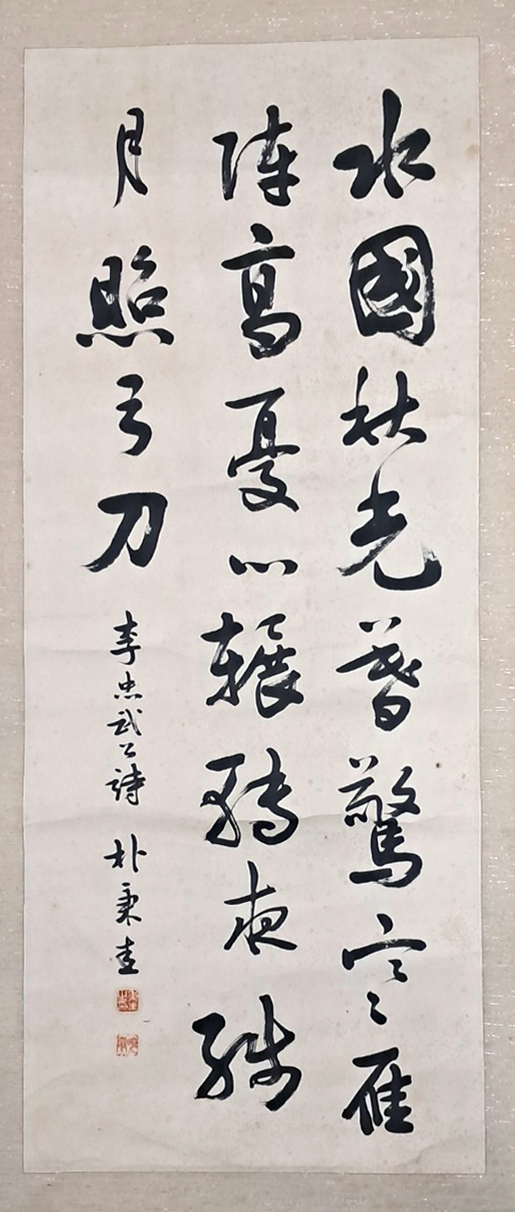 水國秋光暮驚寒雁
陣高憂心輾轉夜殘
月照弓刀 李忠武公詩 朴秉圭